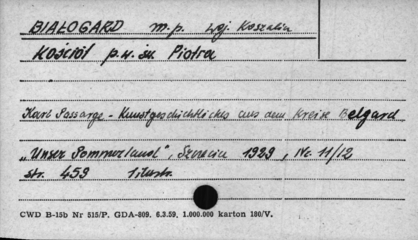 BIAŁOGARD m.p. woj. Koszalin
Kościół p.w. św. Piotra
Karl Passarge - Kunstgeschichtliches aus dem Kreise Belgard
„Unser Pommerland", Szczecin 1929, Nr. 11/12
str. 459 1 ilustr.
CWD B-15b Nr 515/P. GDA-809. 6.3.59. 1.000.000 karton 180/V.